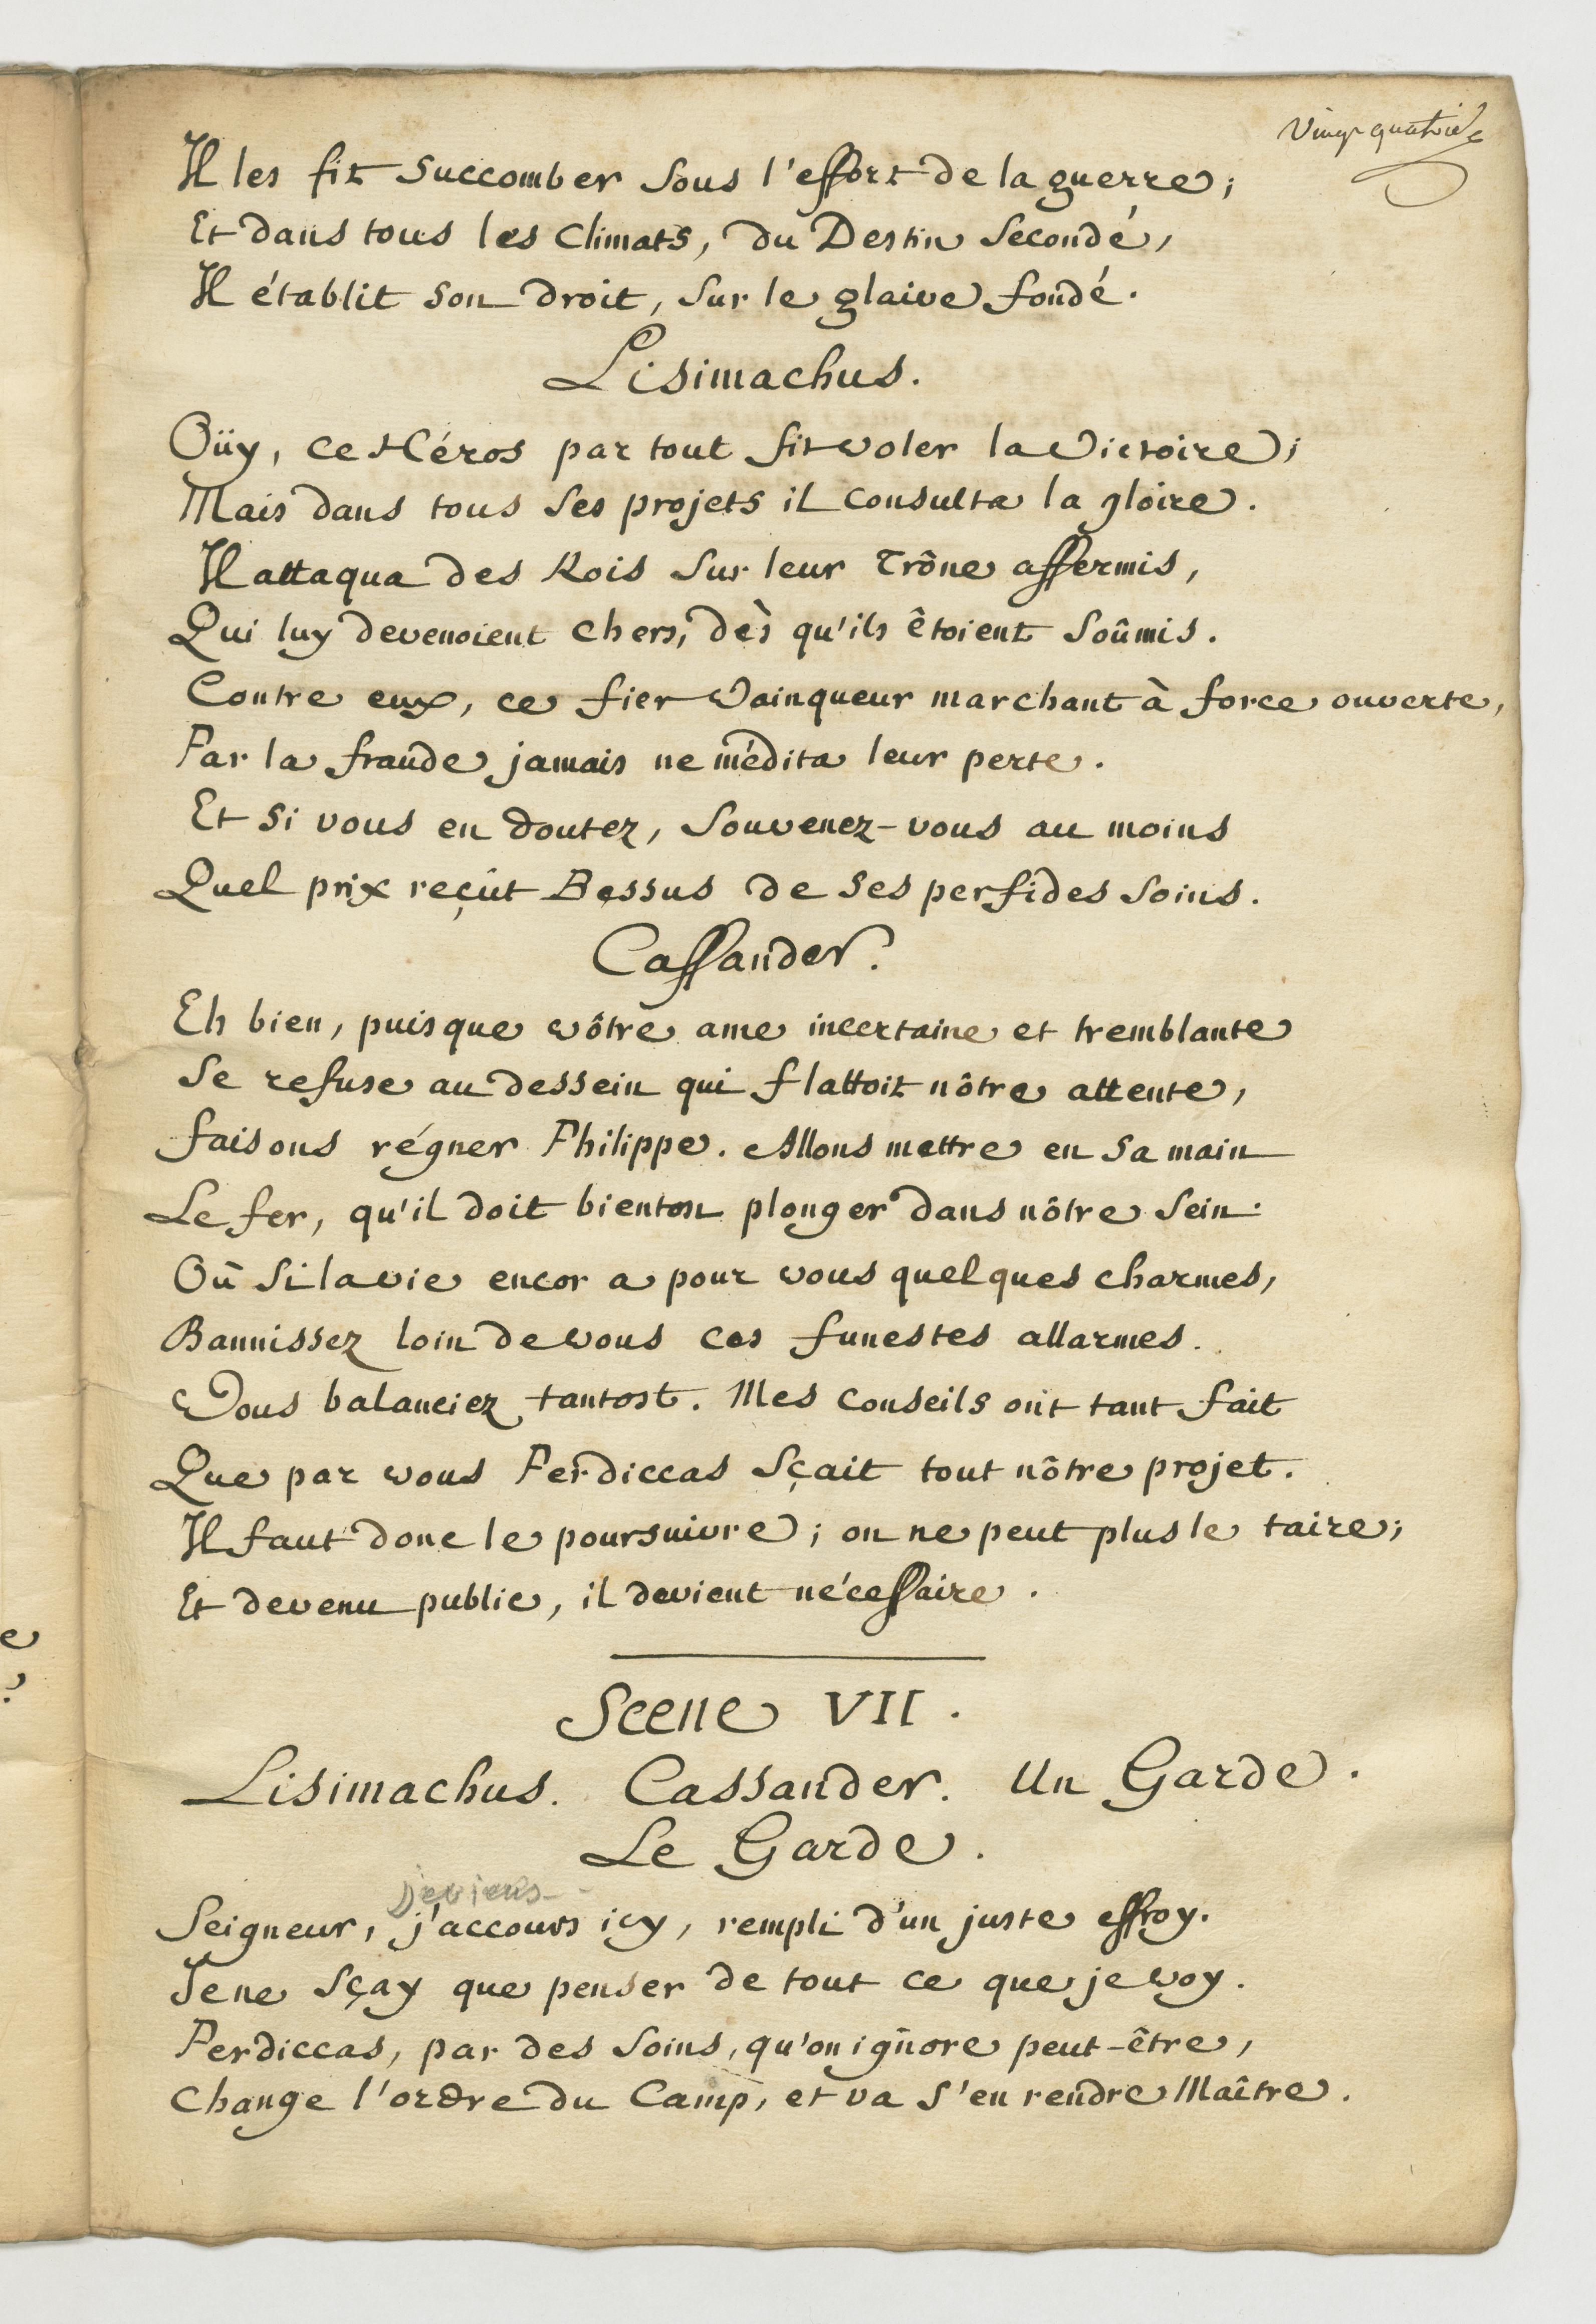 Vingt quatrie
Il les fit succomber sous l'effort de la guerre;
Et dans tous les Climats, du Destin secondé,
Il établit son droit, sur le glaive fondé.
Lisimachus.
Oüy, ce Héros par tout fit voler la Victoire;
Mais dans tous ses projets il consulta la gloire.
Il attaqua des Rois sur leur Trône affermis,
Qui luy devenoient chers, dès qu'ils êtoient soûmis.
Contre eux, ce fier Vainqueur marchant à force ouverte,
Par la fraude jamais ne médita leur perte.
Et si vous en doutez, souvenez-vous au moins
Quel prix reçût Bessus de ses perfides soins.
Cassander.
Eh bien, puisque vôtre ame incertaine et tremblante
Se refuse au dessein qui flattoit nôtre attente,
faisons régner Philippe. Allons mettre en sa main
Le fer, qu'il doit bientost plonger dans nôtre sein.
Où si la vie encor a pour vous quelques charmes,
Bannissez loin de vous ces funestes allarmes.
Vous balanciez tantost. Mes conseils ont tant fait
Que par vous Perdiccas sçait tout nôtre projet.
Il faut donc le poursuivre; on ne peut plus le taire;
Et devenu public, il devient nécessaire.
Scene VII.
Lisimachus. Cassander. Un Garde.
Le Garde.
Je viens
Seigneur, j'accours icy, rempli d'un juste effroy.
Je ne sçay que penser de tout ce que je voy.
Perdiccas, par des soins, qu'on ignore peut-être,
Change l'ordre du Camp, et va s'en rendre Maître.